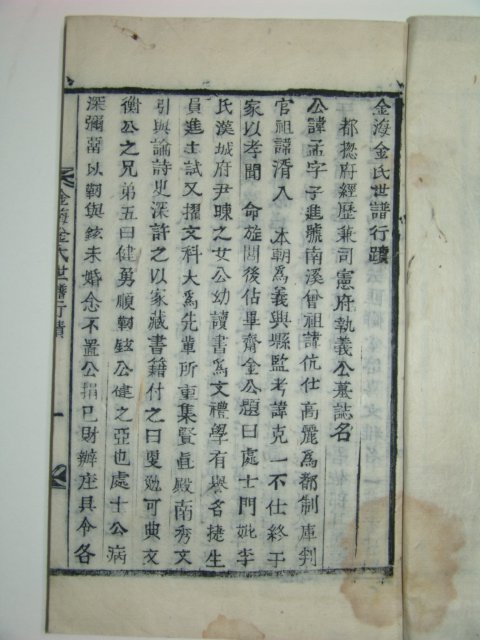 金海金氏世譜行蹟
都摠府經歷兼司憲府執義公墓誌名
公諱孟字子進號南溪曾祖諱伉仕高麗爲都制庫判
官祖諱湑入 本朝爲義興縣監考諱克一不仕終于
家以孝聞 命旋閭後佔畢齋金公題曰處士門妣李
氏漢城府尹暕之女公幼讀書爲文禮學有譽名捷生
員進士試又擢文科大爲先輩所重集賢直殿南秀文
引與論詩史深許之以家藏書籍付之曰更勉可典文
衡公之兄弟五曰健勇順靭鉉公健之亞也處士公病
深彌留以靭與鉉未婚念不置公捐已財辦座具令各
金海金氏世譜行蹟
一